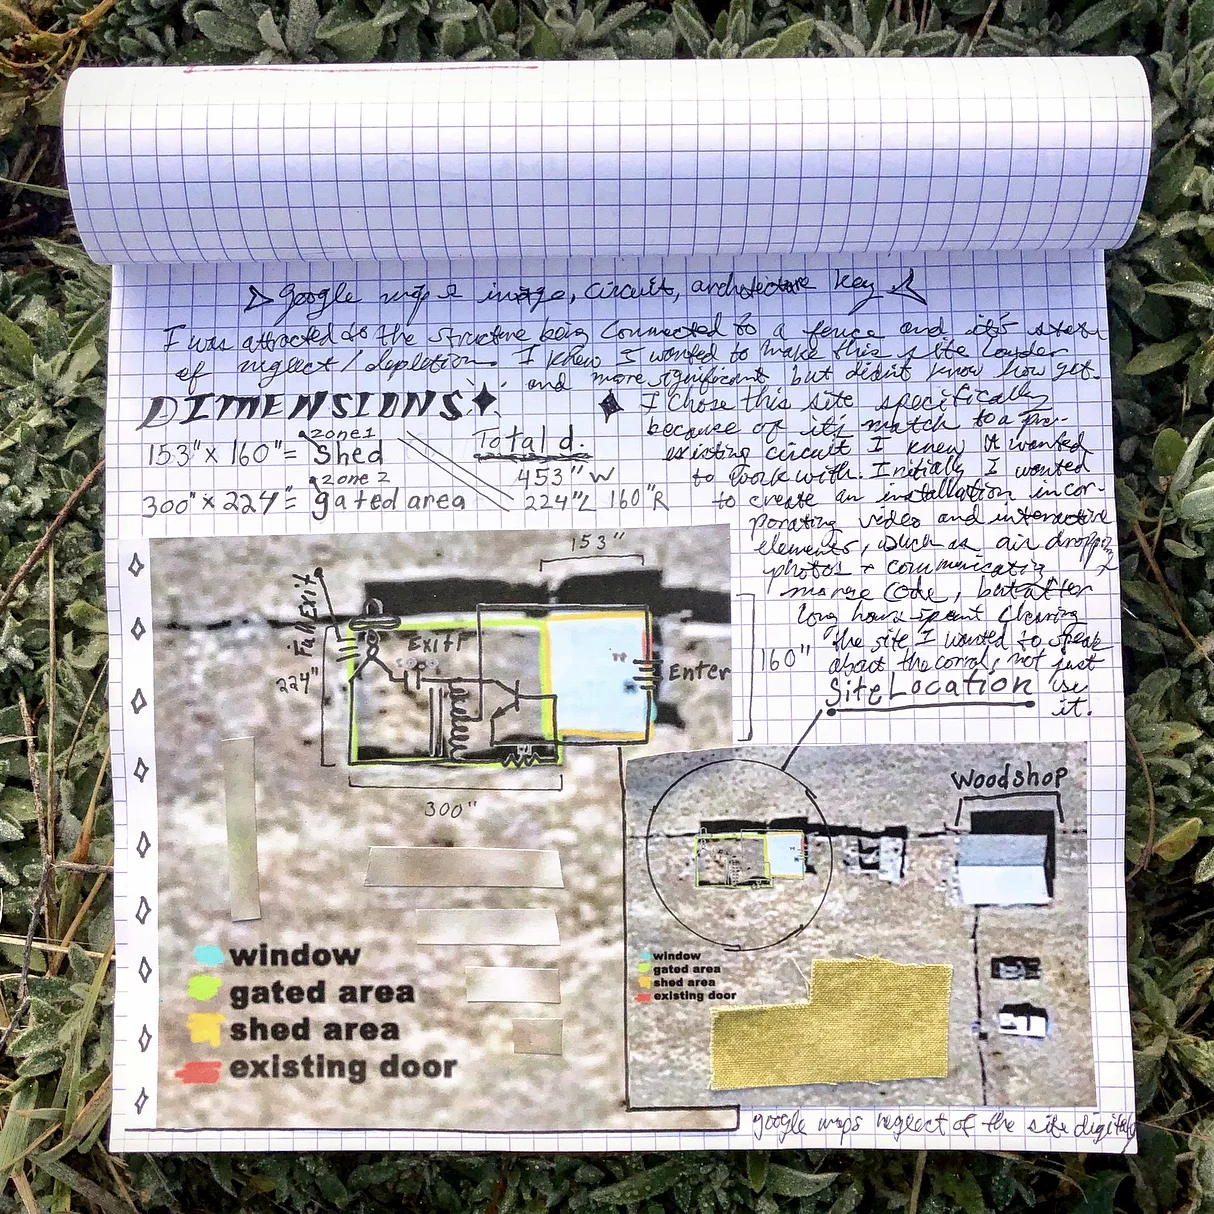 google map image, circuit, architecture key
I was attracted to the structure being connected to a fence and it's state
of neglect/depletion. I knew I wanted to make this site louder
and more significant but didn't know how yet.
DIMENSIONS
153" x 160" = shed
zone 1
300" x 224" = gated area
zone 2
Total d.
453" W
224" L 160" R
I chose this site specifically
because of it's match to a pre-
existing circuit I knew I wanted
to work with. Initially I wanted
to create an installation incor-
porating video and interactive
elements, such as air dropping
photos + communicating
morse code, but after
long hours spent cleaning
the site I wanted to speak
about the corral, not just
use
it.
153"
Exit
Exit?
224"
Enter
160"
300"
window
gated area
shed area
existing door
Site Location
Woodshop
window
gated area
shed area
existing door
google maps neglect of the site digitally